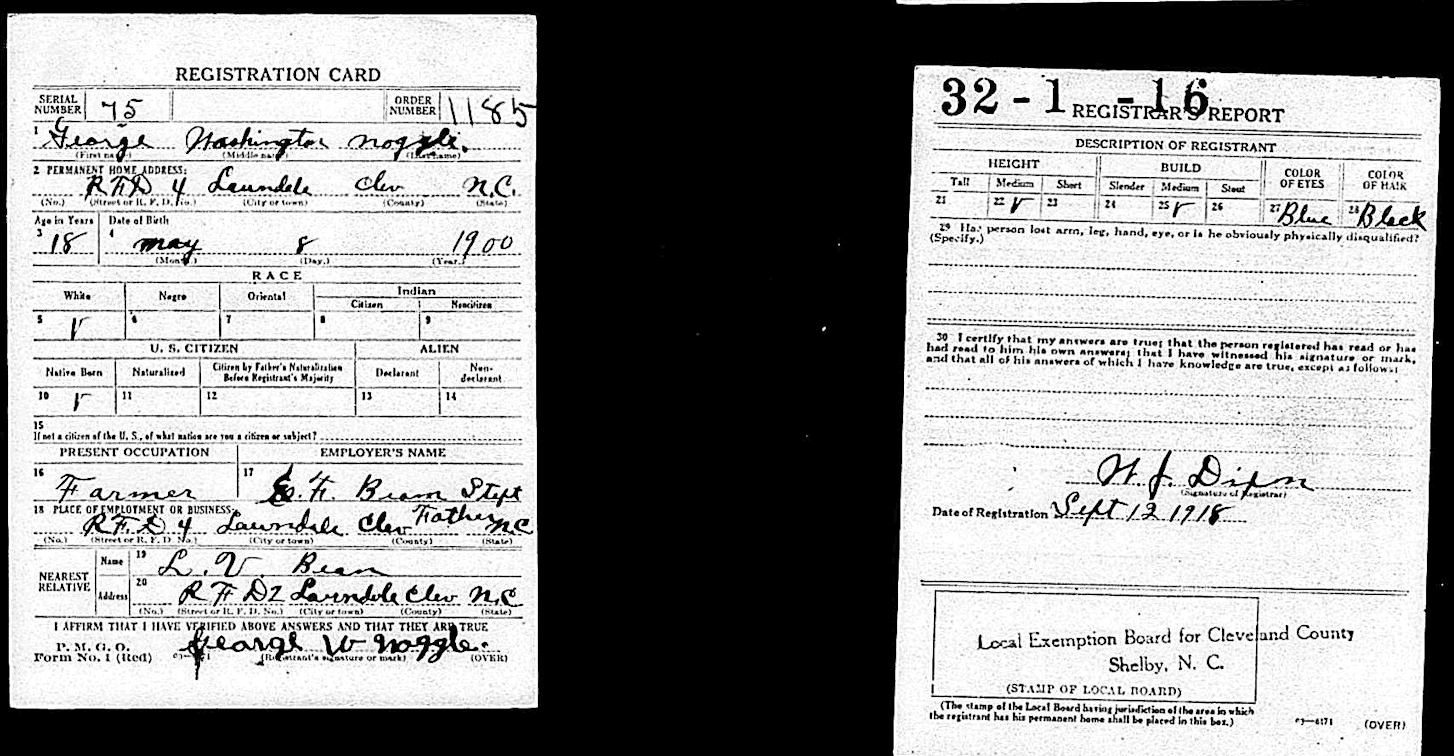 REGISTRATION CARD
SERIAL NUMBER 75 ORDER NUMBER 1185
1 George Washington Noggle.
(First name) (Middle name) (Last name)
2 PERMANENT HOME ADDRESS:
RFD 4 Lawndale Clev N.C.
(No.) (Street or R. F. D. No.) (City or town) (County) (State)
Age in Years Date of Birth
3 18 4 May 8 1900
(Month.) (Day.) (Year.)
RACE
White Negro Oriental Indian
Citizen Noncitizen
5 V 6 7 8 9
U. S. CITIZEN ALIEN
Native Born Naturalized Citizen by Father's Naturalization Before Registrant's Majority Declarant Non-declarant
10 V 11 12 13 14
15
If not a citizen of the U. S., of what nation are you a citizen or subject?
PRESENT OCCUPATION EMPLOYER'S NAME
16 Farmer 17 F. Beam Stept
18 PLACE OF EMPLOYMENT OR BUSINESS: Father
R.F.D 4 Lawndale Clev NC
(No.) (Street or R. F. D. No.) (City or town) (County) (State)
NEAREST RELATIVE Name 19 L. V Beam
Address 20 R F D 2 Lawndale Clev N.C
(No.) (Street or R. F. D. No.) (City or town) (County) (State)
I AFFIRM THAT I HAVE VERIFIED ABOVE ANSWERS AND THAT THEY ARE TRUE
P. M. G. O.
Form No. 1 (Red) George W Noggle.
(Registrant's signature or mark) (OVER)
32-1-16
REGISTRAR'S REPORT
DESCRIPTION OF REGISTRANT
HEIGHT BUILD COLOR OF EYES COLOR OF HAIR
Tall Medium Short Slender Medium Stout
21 22 V 23 24 25 V 26 27 Blue 28 Black
29 Has person lost arm, leg, hand, eye, or is he obviously physically disqualified?
(Specify.)
30 I certify that my answers are true; that the person registered has read or has
had read to him his own answers; that I have witnessed his signature or mark,
and that all of his answers of which I have knowledge are true, except as follows:
W J Dixon
(Signature of Registrar)
Date of Registration Sept 12 1918
Local Exemption Board for Cleveland County
Shelby, N. C.
(STAMP OF LOCAL BOARD)
(The stamp of the Local Board having jurisdiction of the area in which
the registrant has his permanent home shall be placed in this box.)
03—6171 (OVER)